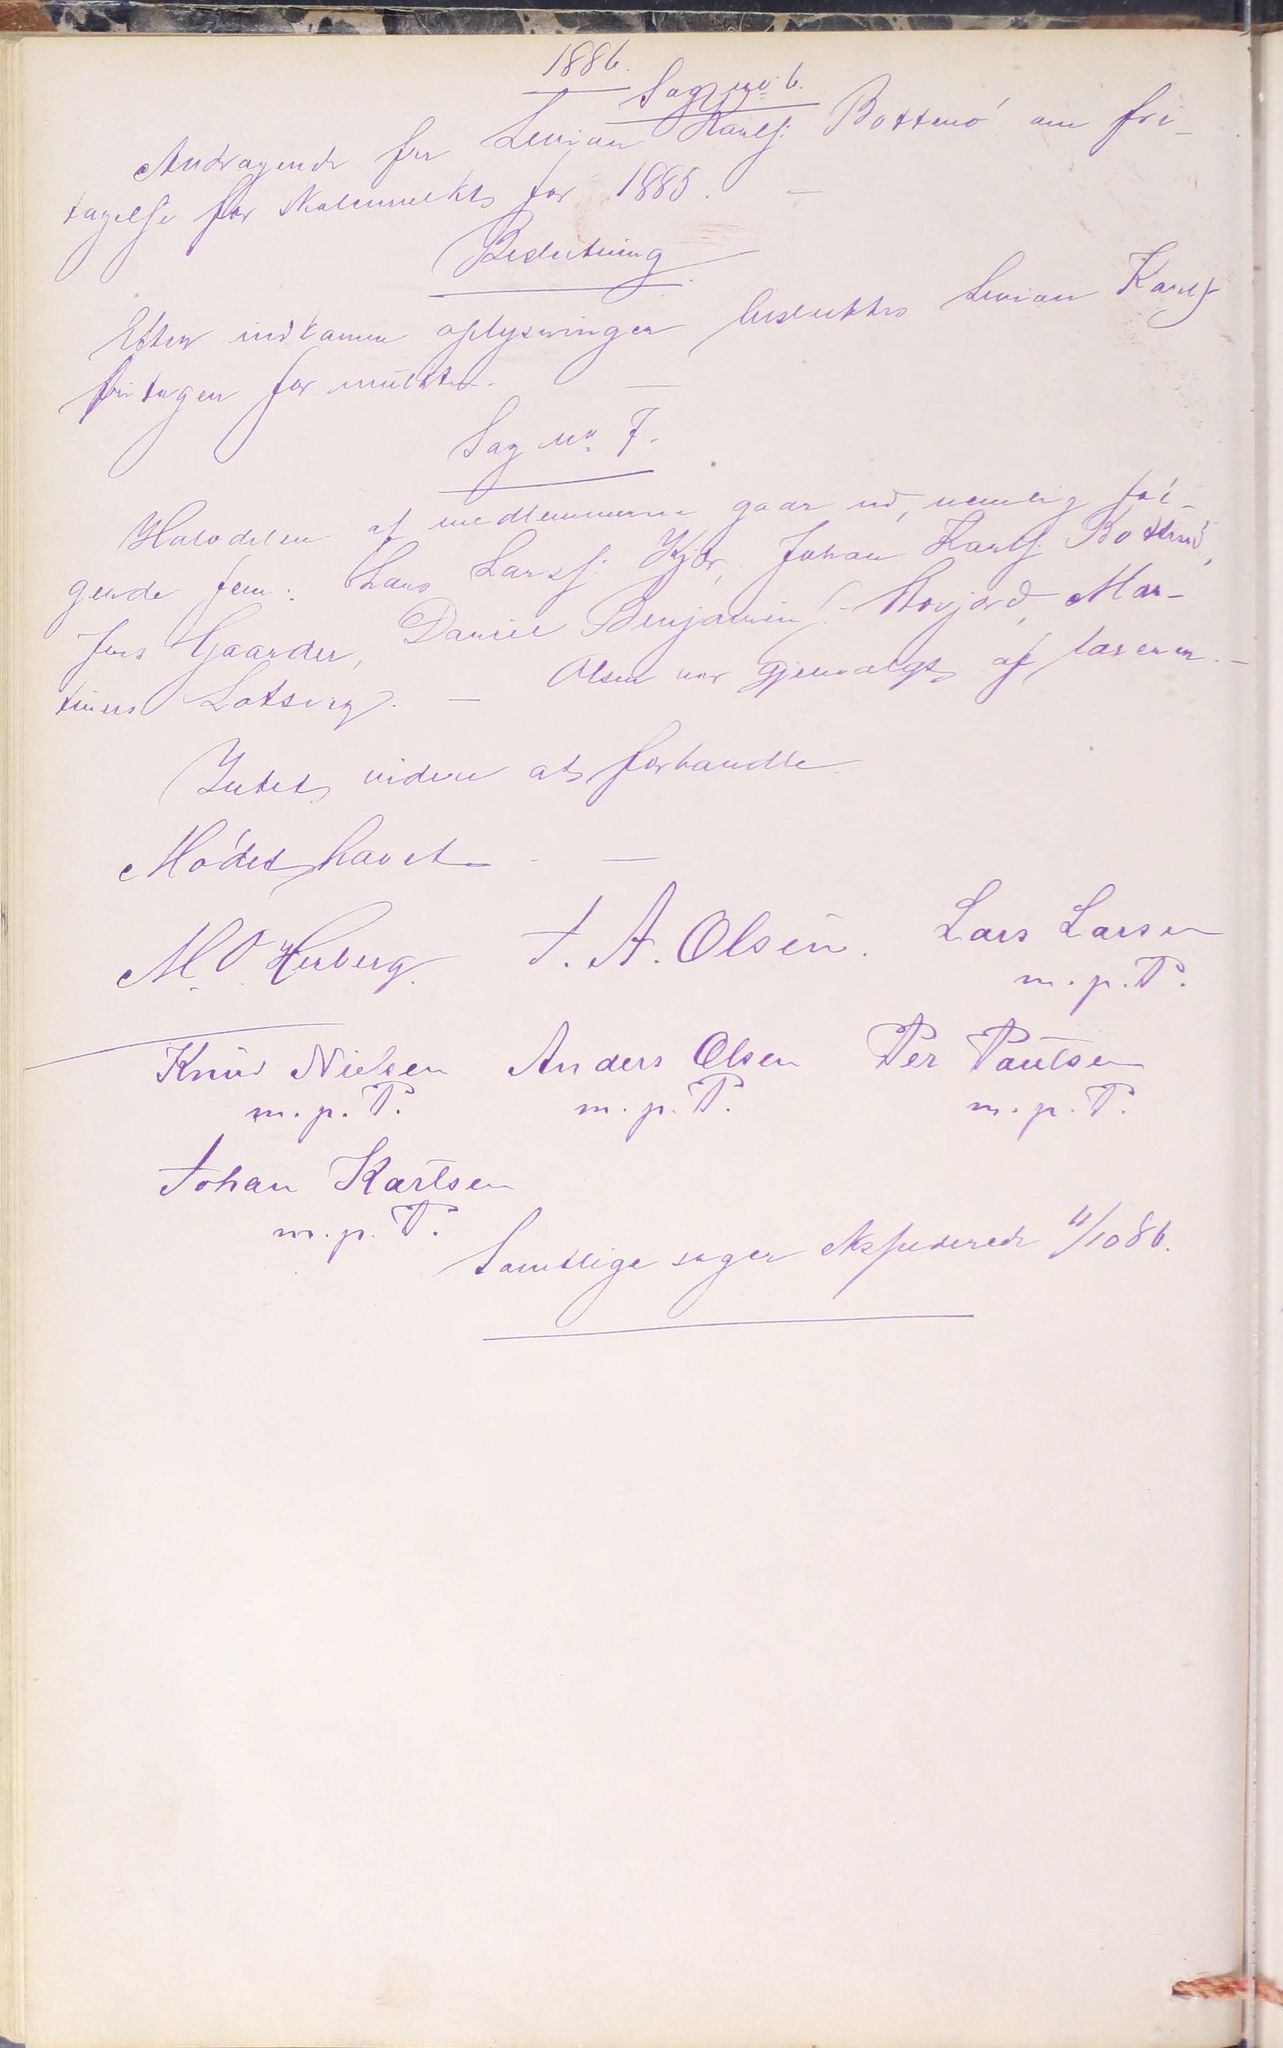 1886.
Sag no. 6.
Andragende fra Karlsj: Bottenö om fri-
tagelse for skolemulkts for 1885. —
Beslutning
Efter indkomne oplysninger besluttes Karlsj
fritagen for mulkten. —
Sag no. 7.
Halvdelen af medlemmerne gaar ud, nemlig föl-
gende fem: Lars Larsj: Kjör, Johan Karlsj: Bottenö,
Jens Gaarder, Daniel Benjaminsj: Storjord, Mar-
tinus Lotsvig. — Olsen var gjenvalgt af lærerne. —
Intet videre at forhandle.
Mödet hævet. —
M. O. Herberg. J. A. Olsen. Lars Larsen
m. p. P.
Knud Nielsen Anders Olsen Per Paulsen
m. p. P. m. p. P. m. p. P.
Johan Karlsen
m. p. P.
Samtlige sager ekspederede 11/10 86.